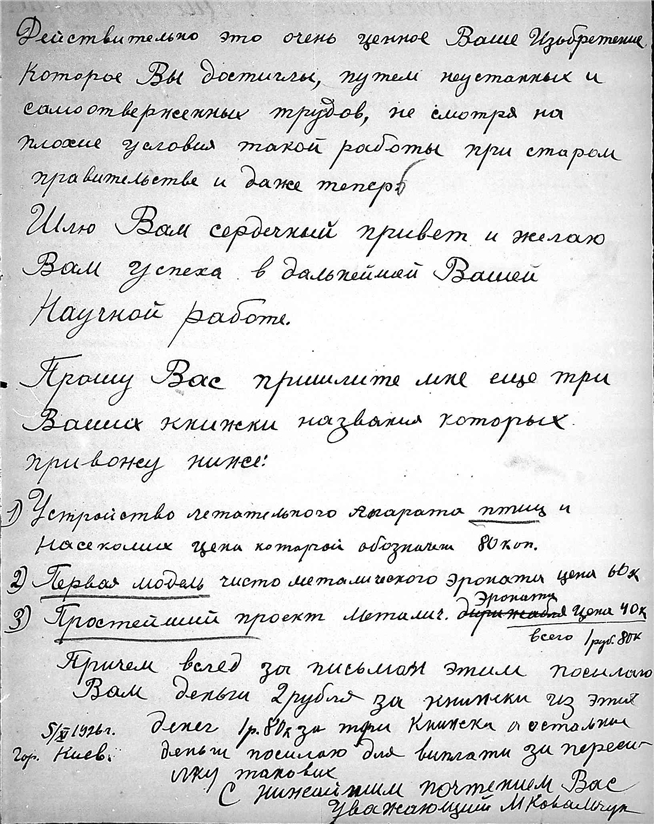 Действительно это очень ценное Ваше Изобретение
Которое Вы достиглы, путем неустанных и
самоотверженных трудов, не смотря на
плохие условия такой работы при старом
правительстве и даже теперь
Шлю Вам сердечный привет и желаю
Вам успеха в дальнейшей Вашей
Научной работе.
Прошу Вас пришлите мне еще три
Ваших книжки названия которых
привожу ниже:
1) Устройство летательного апарата птиц и
насекомих цена которой обозначена 80 коп.
2) Первая модель чисто металического эроната цена 60 к
Эроната
3) Простейший проект Металич. дирижабля цена 40 к
всего 1 руб. 80к
Причем вслед за письмом этим посилаю
Вам деньги 2 рубля за книжки из этих
5/XI 1926 г. денег 1 р. 80 к за три Книжки а остальные
Гор. Киев. деньги посилаю для виплати за переси-
лку такових
С нижайшим почтением Вас
Уважающий М Ковальчук